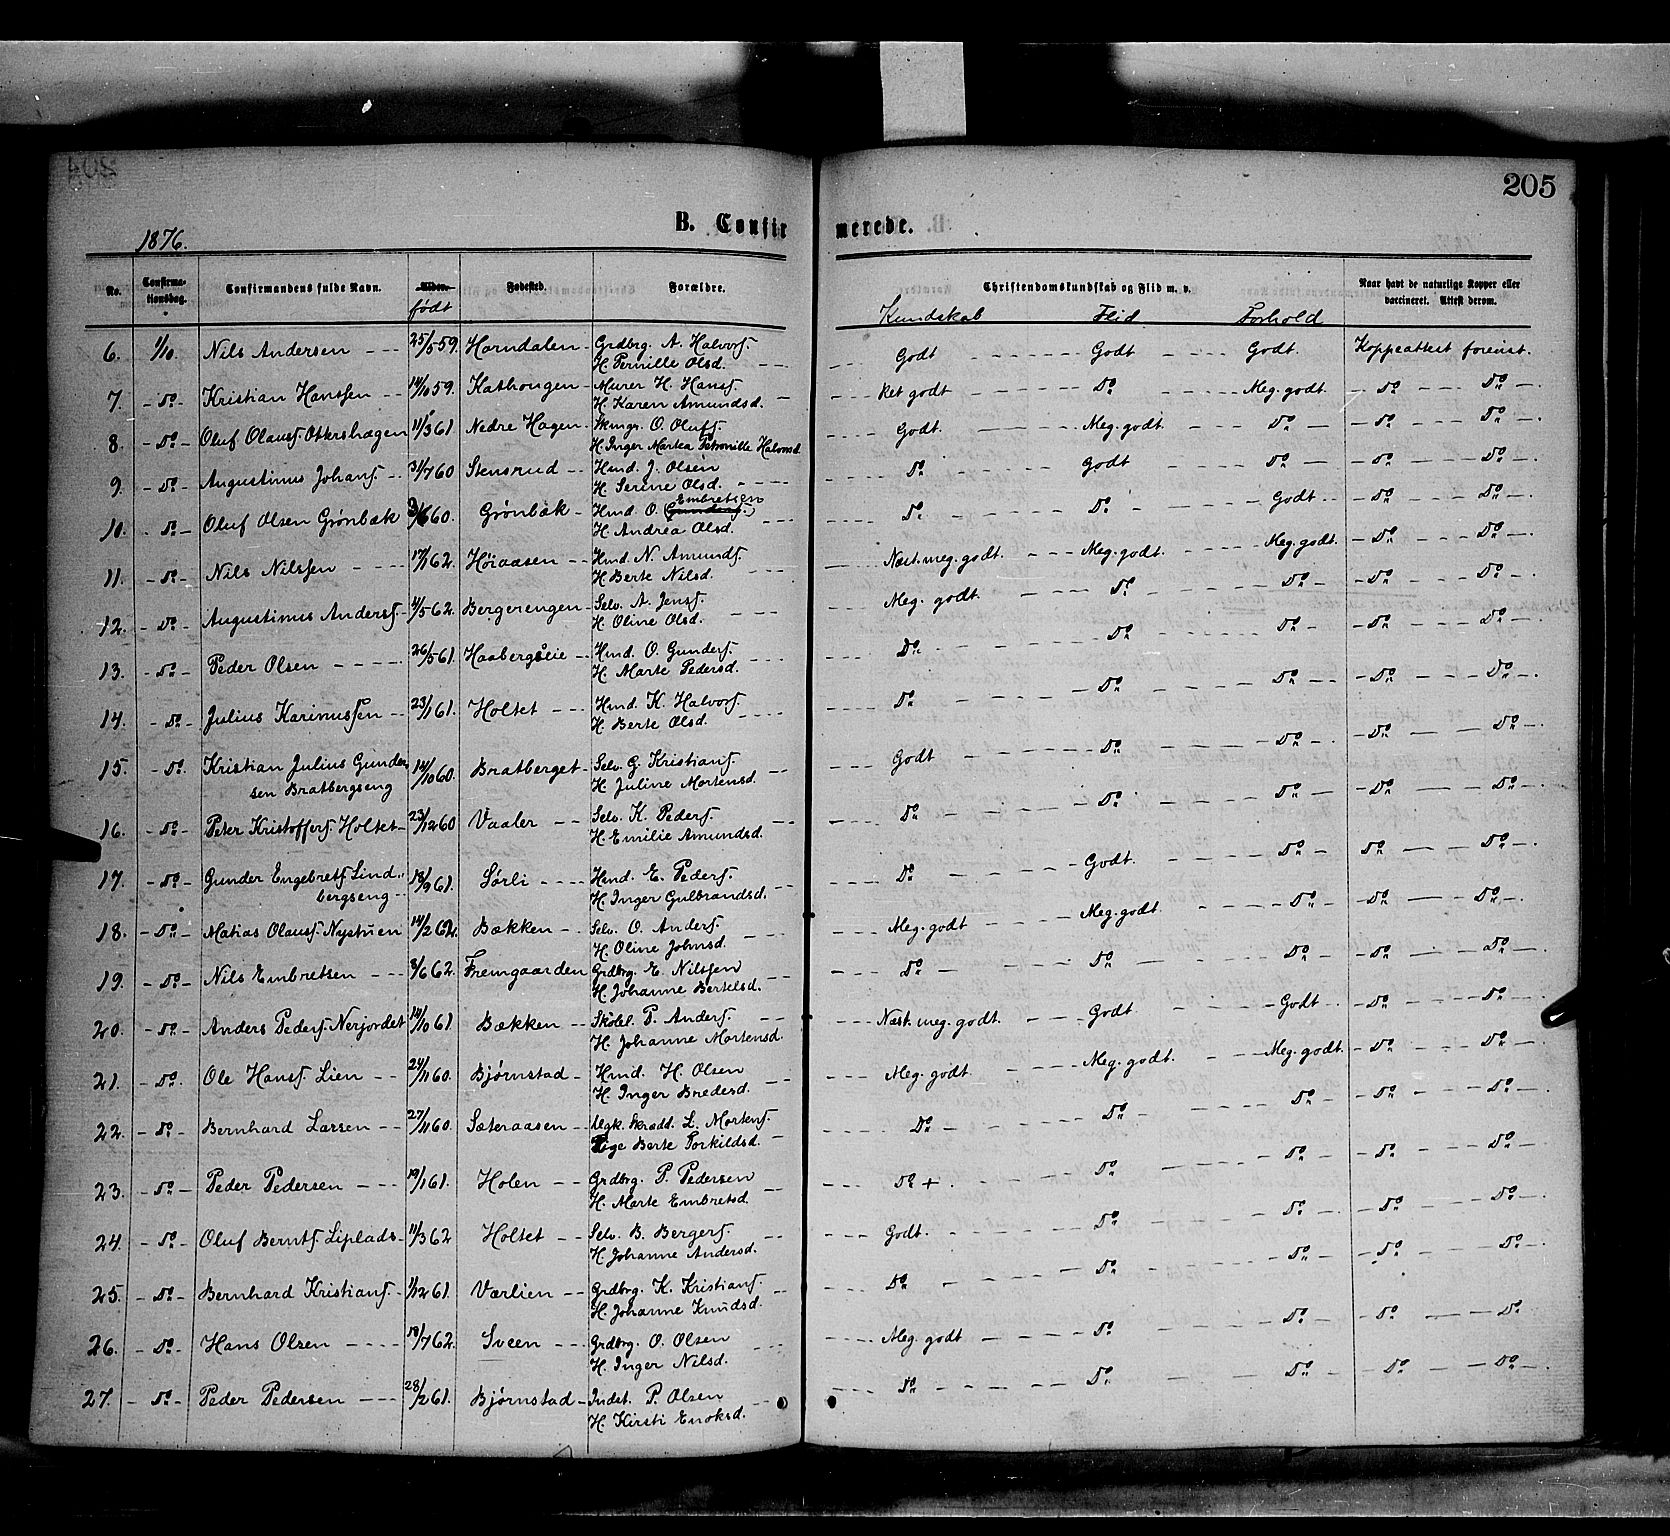 205
1876.
B. Confirmerede.
No. Confirmationsdag. Confirmandens fulde Navn. Alder. født Fødested. Forældre. Christendomskundskab og Flid m. v. Naar havt de naturlige Kopper eller vaccineret. Attest derom.
Kundskab Flid Forhold
6. 1/10. Nils Andersen 25/5 59. Horndalen Grdbrg. A. Halvorsf. Godt Godt Godt. Koppeattest forevist.
H. Pernille Olsd.
7. Do Kristian Hanssen 14/10 59. Kathongen Murer H. Hansf. Ret godt Do Meg. godt Do Do
H. Karen Amundsd.
8. Do Oluf Olausf. Otkershagen 11/3 61 Nedre Hagen Skmgr. O. Olufsf. Godt Meg. godt Do Do Do
H. Inger Martea Petronille Halvorsd.
9. Do Augustinus Johansf. 31/7 60 Stensrud Hmd. J. Olsen Do Godt Do Do Do
H. Serine Olsd.
10. Do Oluf Olsen Grønbæk /6 60. Grønbæk Hmd. O. Gundersf. Embretsen Do Do Godt Do Do
H. Andrea Olsd.
11. Do Nils Nilssen 17/1 62. Høiaasen Hmd. N. Amundsf. Næst. meg. godt. Meg. godt. Meg. godt. Do Do
H. Berte Nilsd.
12. Do Augustinus Andersf. 4/5 62. Bergerengen Selv. A. Jensf. Meg. godt. Do Do Do Do
H. Oline Olsd.
13. Do Peder Olsen 26/5 61. Haabergseie Hmd. O. Gundersf. Do Do Do Do Do
H. Marte Pedersd.
14. Do Julius Karinussen 23/1 61. Holtet Hmd. K. Halvorsf. Do Do Do Do Do
H. Berte Olsd.
15. Do Kristian Julius Gunder- 14/10 60. Bratberget Selv. G. Kristiansf. Godt Do Do Do Do
sen Bratbergseng H. Juline Mortensd.
16. Do Peter Kristoffersf. Holtet 23/12 60 Vaaler Selv. K. Pedersf. Do Do Do Do Do
H. Emilie Amundsd.
17. Do Gunder Engebretsf. Lind- 13/9 61. Sørli Hmd. E. Pedersf. Do Godt. Do Do Do
bergseng H. Inger Gulbrandsd.
18. Do Matias Olausf. Nystuen 14/2 62. Bækken Selv. O. Andersf. Meg. godt Meg. godt Do Do Do
H. Oline Johnsd.
19. Do Nils Embretsen 3/6 62. Fremgaarden Grdbrg. E. Nilssen Do Do Do Do Do
H. Johanne Bertelsd.
20. Do Anders Pedersf. Nerjordet 14/10 61 Bækken Skolel. P. Andersf. Næst. meg. godt. Godt Godt Do Do
H. Johanne Mortensd.
21. Do Ole Hansf. Lien 24/11 60. Bjørnstad Hmd. H. Olsen Meg. godt Meg. godt Meg. godt. Do Do
H. Inger Bredesd.
22. Do Bernhard Larsen 27/11 60. Sæteraasen Ugk. Skrædd. L. Mortensf. Do Do Do Do Do
Pige Berte Torkildsd.
23. Do Peder Pedersen 19/1 61. Holen Grdbrg. P. Pedersen Do + Do Do Do Do
H. Marte Embretsd.
24. Do Oluf Berntsf. Liplads 11/3 62 Holtet Selv. B. Bergersf. Godt. Do Do Do Do
H. Johanne Andersd.
25. Do Bernhard Kristiansf. 1/12 61. Værlien Grdbrg. K. Kristiansf. Do Do Do Do Do
H. Johanne Knudsd.
26. Do Hans Olsen 18/7 62. Sveen Grdbrg. O. Olsen Meg. godt Do Do Do Do
H. Inger Nilsd.
27. Do Peder Pedersen 28/2 61. Bjørnstad Indst. P. Olsen Do Do Do Do Do
H. Kirsti Enoksd.